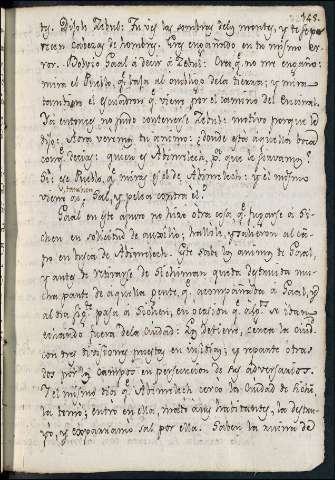 145.
ts. Dijole Zebul: Tu ves las sombras de los montes, y te se pa-
recen cabezas de hombres. Eres engañado en tu mismo er-
ror. Volvio Gaal á decir á Zebul: Cree q.e no me engaño:
mira el Pueblo, q.e baja al ombligo de la tierra; y mira
tambien el Esquadron q.e viene por el camino del Encinal.
Ya entonces no pudo contenerse Zebul: motivo porque le
dijo: Aora veremos tu animo: ¿donde esta aquella boca
conq.e decias: quien es Abimelech, p.a que le sirvamos?
Si: ese Pueblo, q.e miras es el de Abimelech: y el mismo
viene tambien Sal, y pelea contra él.
Gaal en este apuro no hizo otra cosa q.e fugarse á Si-
chen en solicitud de auxilio; hallolo, y salieron al ca-
po en busca de Abimelech. Este sabe los animos de Gaal,
y antes de retirarse de Sichiman queda destruida mu-
cha parte de aquella gente, q.e acompañaba á Gaal, y
al dia sig.te pasa á Sichem, en ocasion q.e alg.s se
fuera de la Ciudad: los detiene, cerca la Ciu-
dad con tres divisiones puestas en insidias; y reparte otras
dos por los campos en persecucion de sus adversarios.
Y el mismo dia q.e Abimelech cerco la Ciudad de Sichem,
la tomó; entró en ella, mató á sus habitantes, la destru-
yó, y esparramó sal por ella. Saben la ruina de